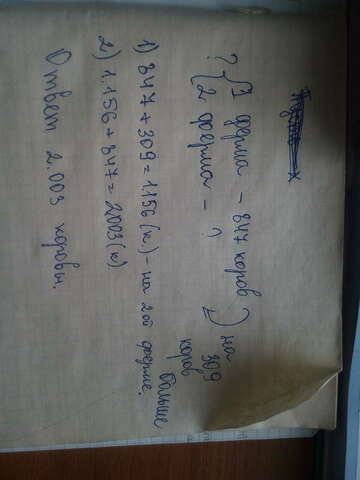 1 ферма – 847 коров
? 2 ферма – ?
на 309 коров больше
1) 847 + 309 = 1156 (к.) – на 2ой ферме.
2) 1.156 + 847 = 2003 (к)
Ответ 2.003 коровы.